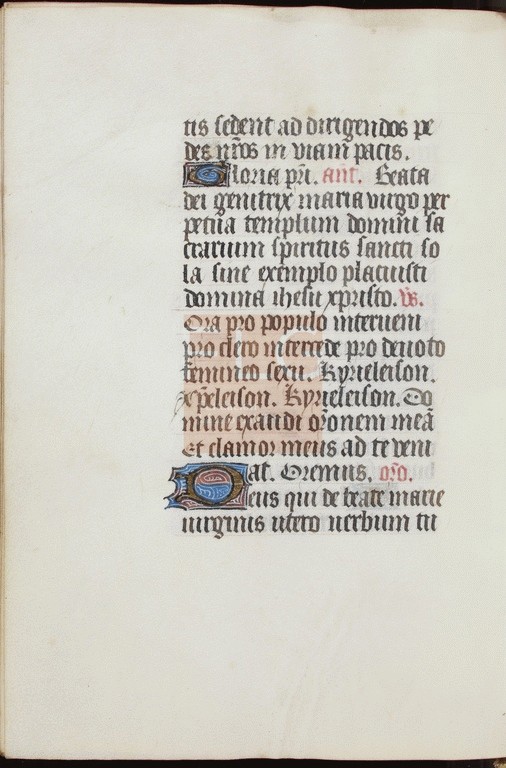 tis sedent ad dirigendos pe
des nr̄os in viam pacis.
Gloria pr̄i. ant̄. Beata
dei genitrix maria virgo per
petua templum domini sa
crarium spiritus sancti so
la sine exemplo placuisti
domina ihesu xpristo. vs.
Ora pro populo interueni
pro clero intercede pro deuoto
femineo sexu. Kyrieleison.
xp̄eleison. Kyrieleison. Do
mine exaudi or̄onem meā
Et clamor meus ad te veni
at. Oremus. or̄o.
Deus qui de beate marie
uirginis utero uerbum tu